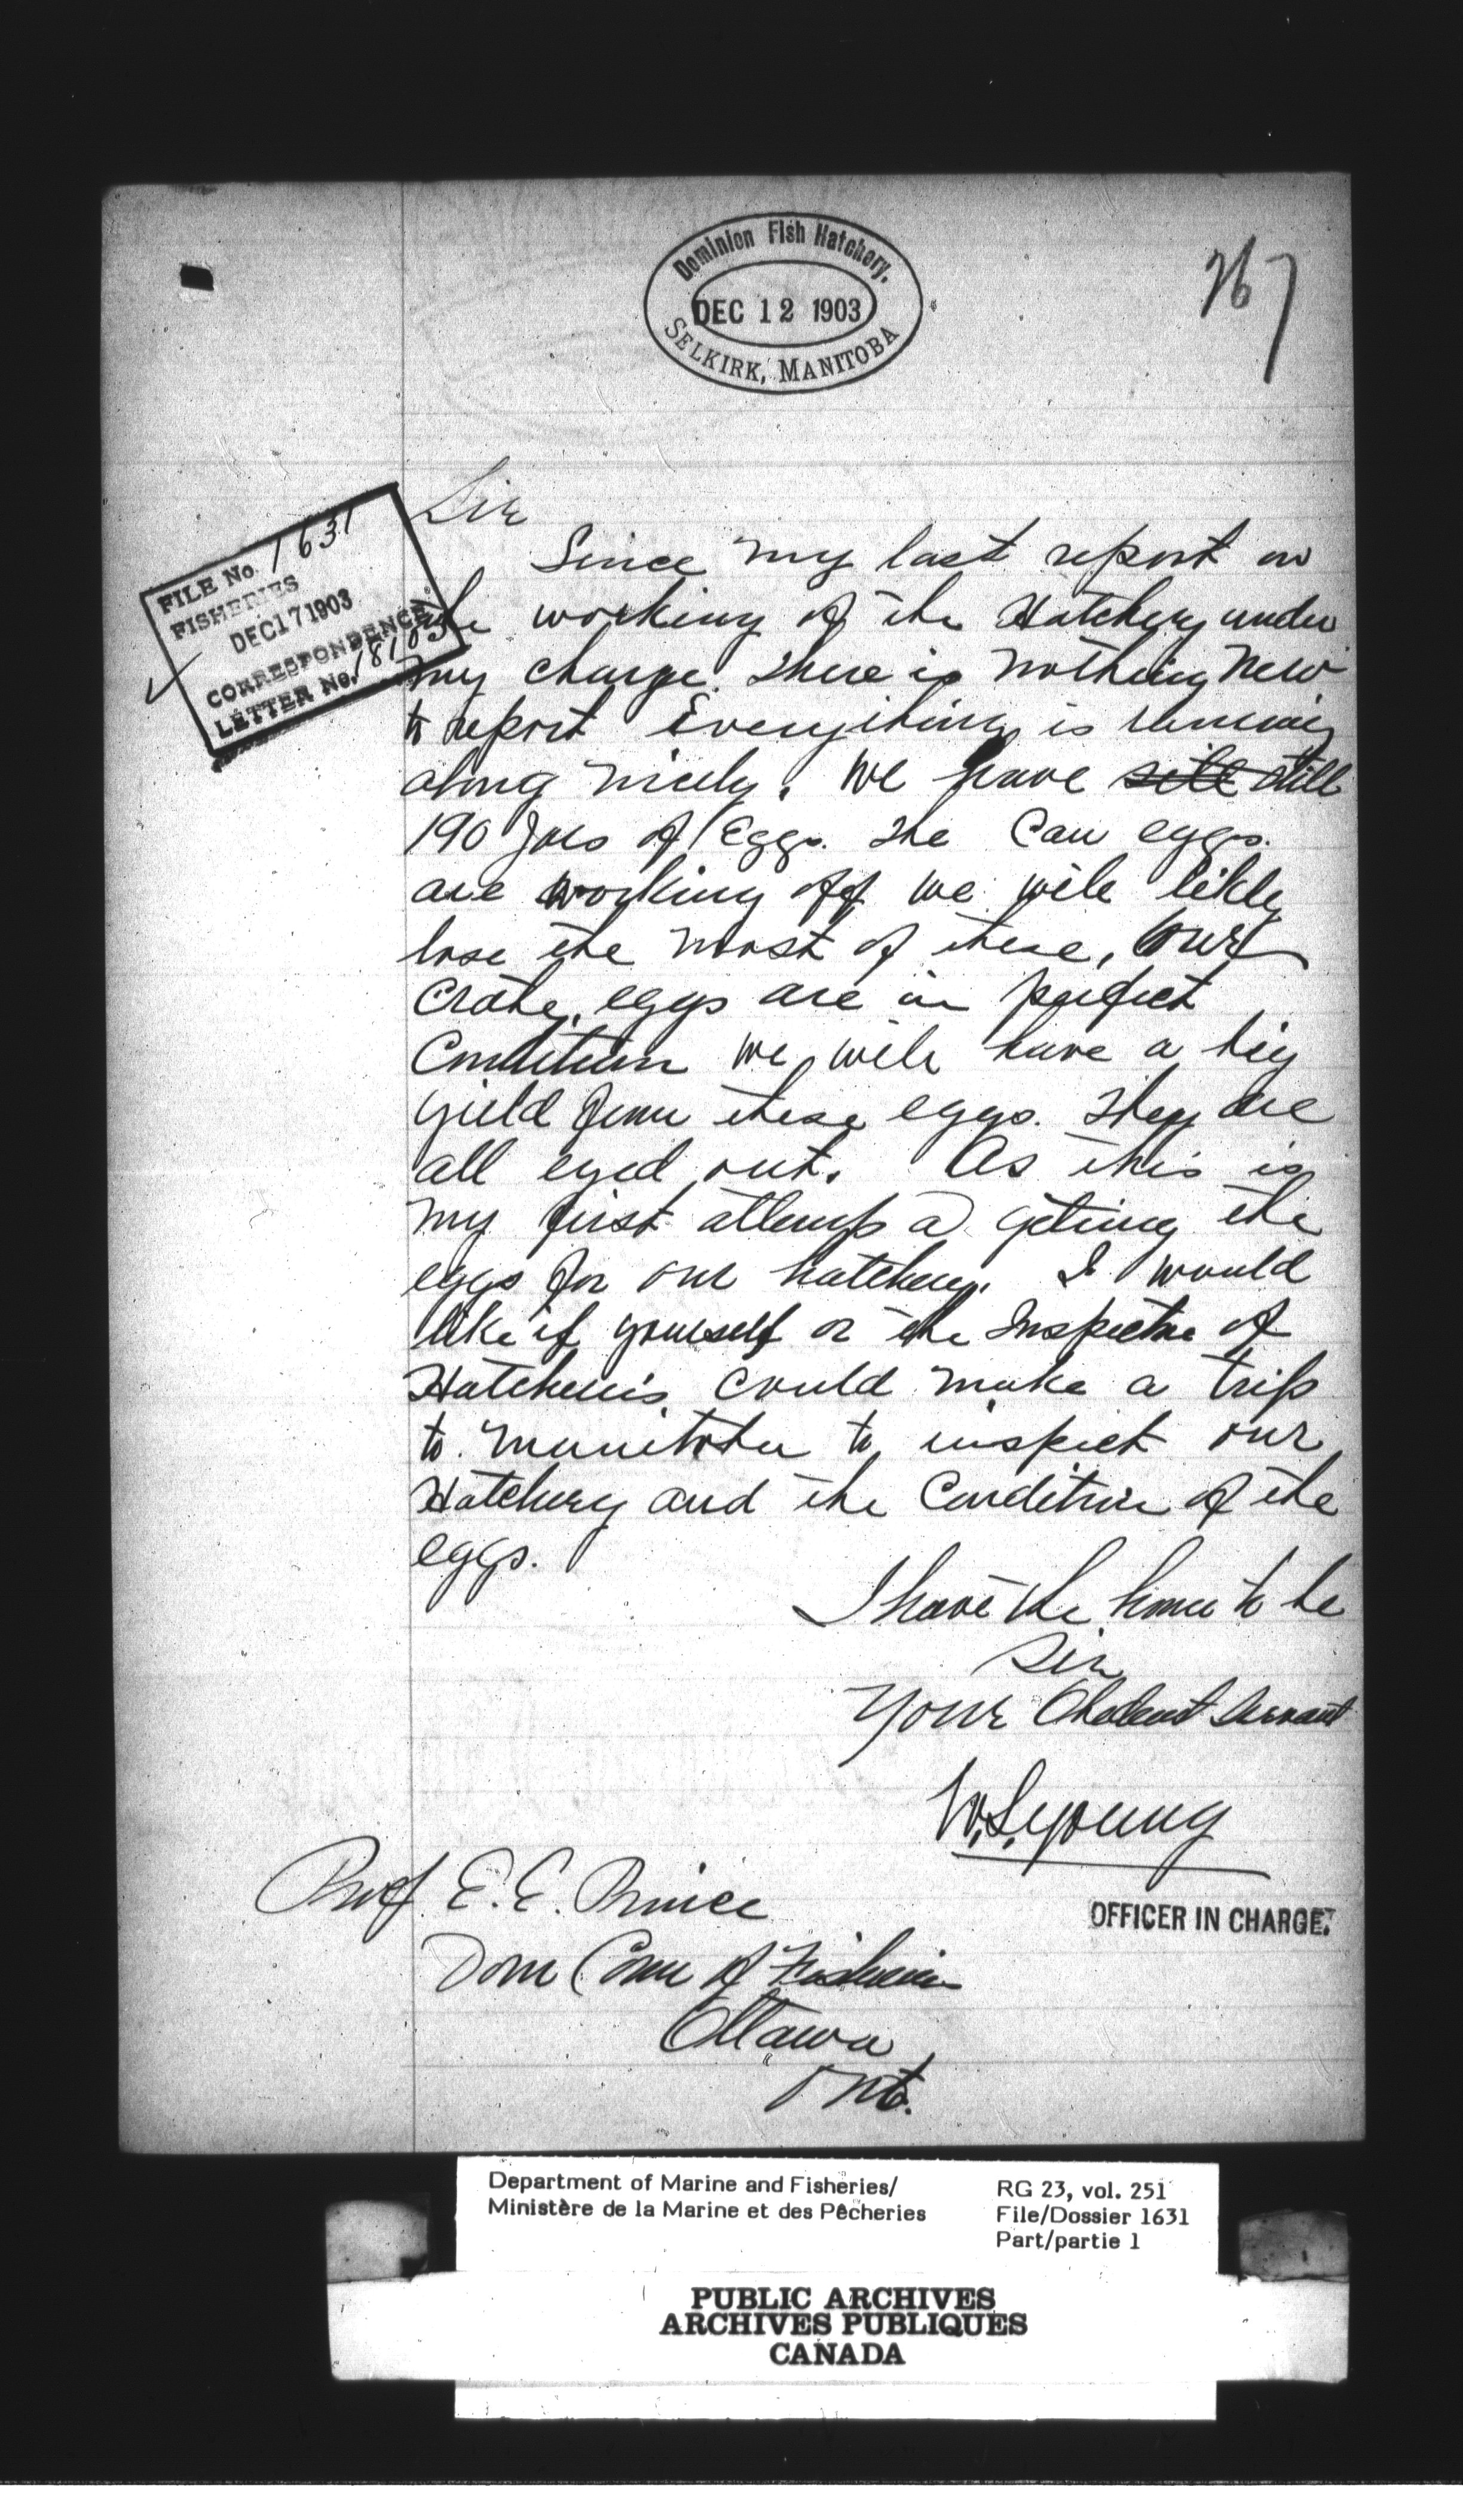 Dominion Fish Hatchery.
DEC 12 1903
SELKIRK, MANITOBA
267
FILE No. 1631
FISHERIES
DEC 17 1903
CORRESPONDENCE
LETTER No.
Sir
Since my last report on
the working of the Hatchery under
my charge. There is nothing new
to report Everything is running
along nicely. We have still
190 Jars of Eggs. The Can eggs.
are working off we will likly
lose the most of these, our
Crate, eggs are in perfect
Condition we will have a big
yield from these eggs. They are
all eyed out. As this is
my first attemp at geting the
eggs for our hatchery. I would
like if yourself or the Inspector of
Hatcheries could make a trip
to Manitoba to inspect our
Hatchery and the Condition of the
eggs.
I have the honor to be
Sir
Your Obedent Servant
W.S. Young
OFFICER IN CHARGE.
Prof. E.E. Prince
Dom Com of Fisheries
Ottawa
Ont.
Department of Marine and Fisheries/
Ministère de la Marine et des Pêcheries
RG 23, vol. 251
File/Dossier 1631
Part/partie 1
PUBLIC ARCHIVES
ARCHIVES PUBLIQUES
CANADA